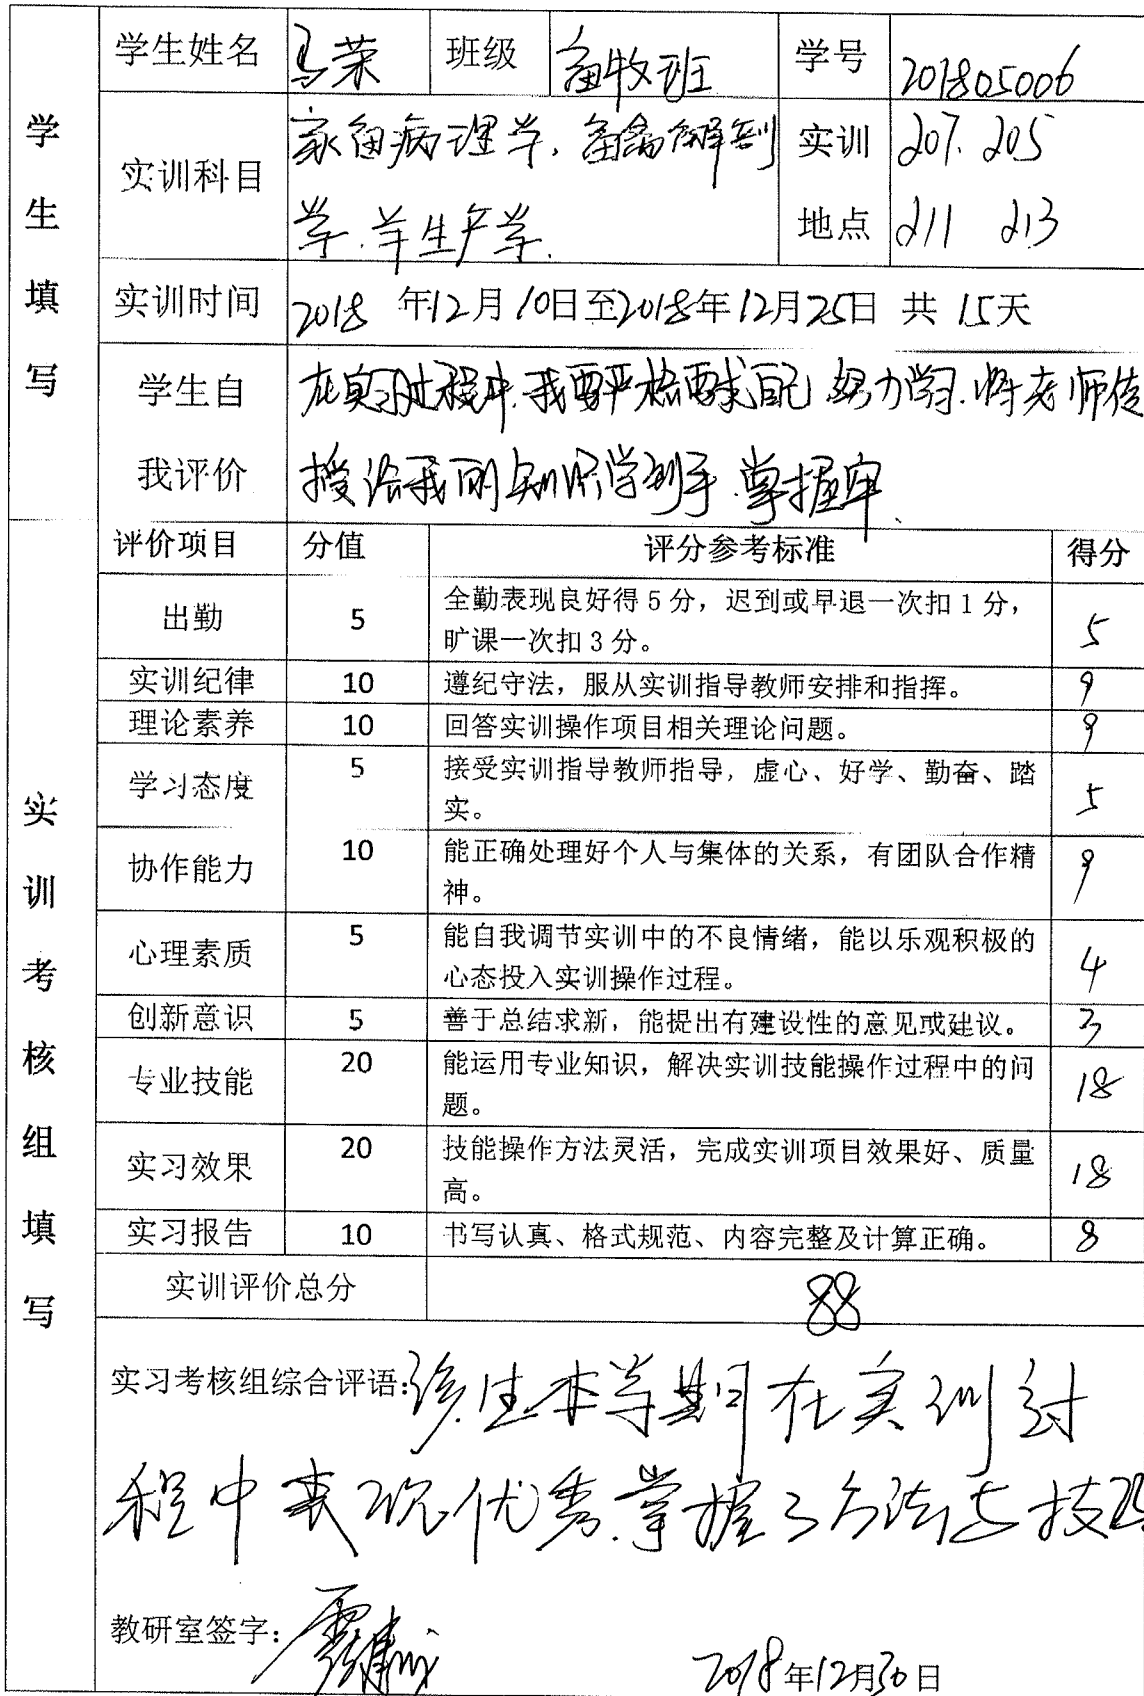 学生填写
学生姓名 马荣 班级 畜牧班 学号 201805006
实训科目 家畜病理学、畜禽解剖学、羊生产学. 实训地点 207. 205 211 213
实训时间 2018 年12月10日至2018年12月25日 共 15天
学生自我评价 在实习过程中,我要严格要求自己 努力学习.将老师传
授给我的知识学到手.掌握牢.
实训考核组填写
评价项目 分值 评分参考标准 得分
出勤 5 全勤表现良好得5分，迟到或早退一次扣1分，
旷课一次扣3分。 5
实训纪律 10 遵纪守法，服从实训指导教师安排和指挥。 9
理论素养 10 回答实训操作项目相关理论问题。 9
学习态度 5 接受实训指导教师指导，虚心、好学、勤奋、踏
实。 5
协作能力 10 能正确处理好个人与集体的关系，有团队合作精
神。 9
心理素质 5 能自我调节实训中的不良情绪，能以乐观积极的
心态投入实训操作过程。 4
创新意识 5 善于总结求新，能提出有建设性的意见或建议。 3
专业技能 20 能运用专业知识，解决实训技能操作过程中的问
题。 18
实习效果 20 技能操作方法灵活，完成实训项目效果好、质量
高。 18
实习报告 10 书写认真、格式规范、内容完整及计算正确。 8
实训评价总分 88
实习考核组综合评语: 该生本学期在实训过
程中表现优秀.掌握了方法与技巧
教研室签字:
2018年12月30日